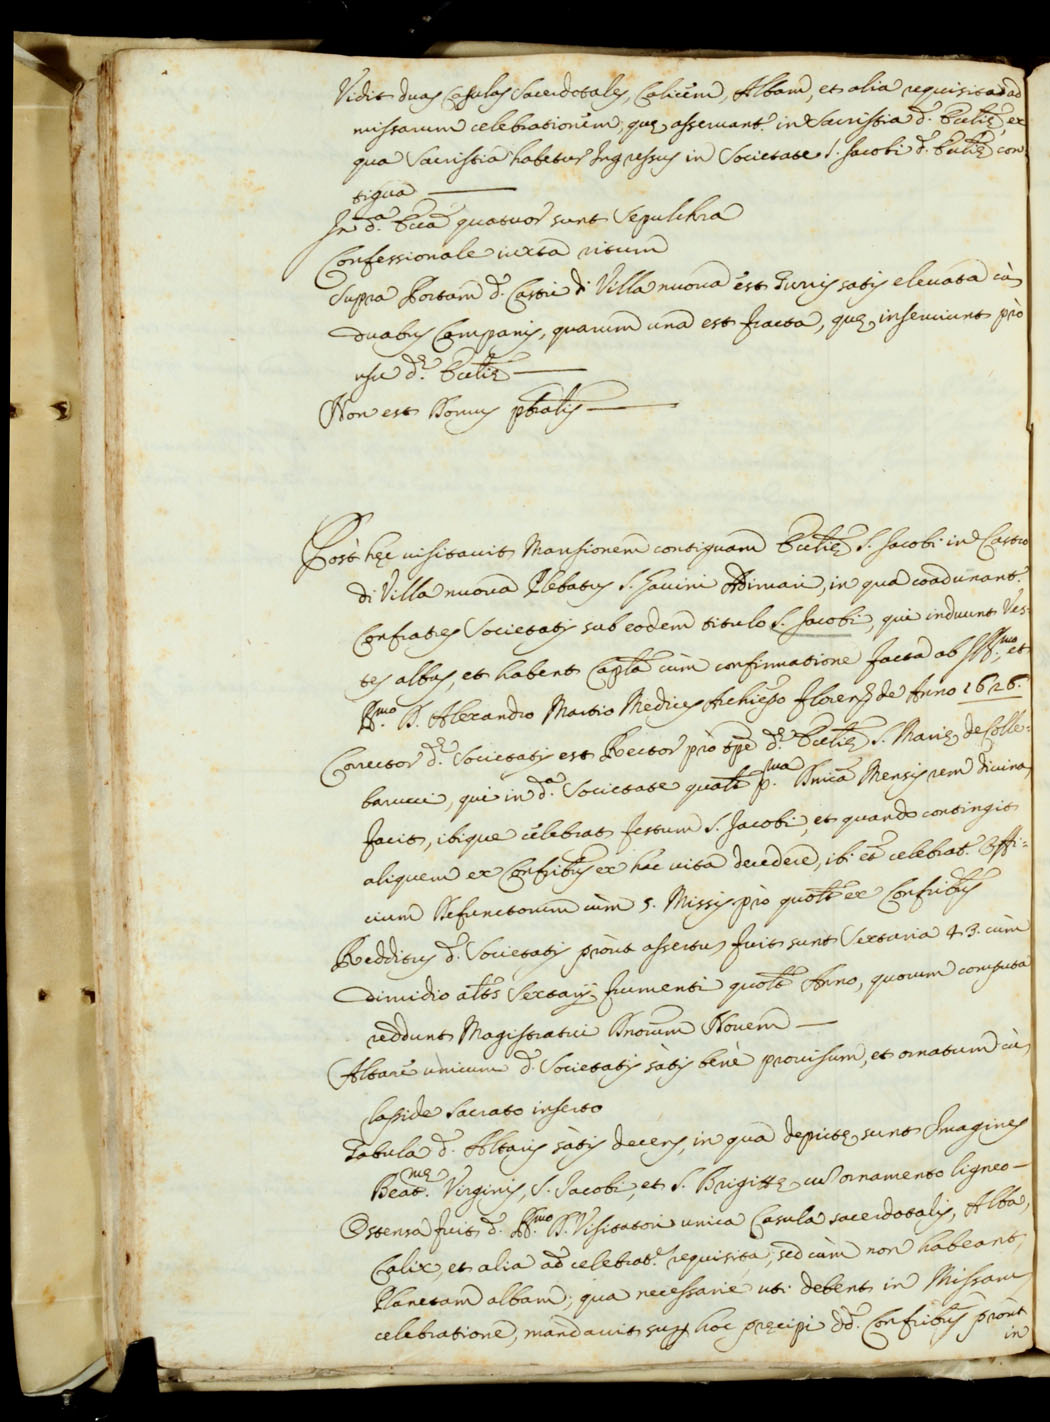 Vidit duas Casulas Sacerdotales, Calicem, Albam, et alia requisita ad
missarum celebrationem, quę asseruant.r in Sacristia d.ę Eccl.ię, ex
qua Sacristia habetur Ingressus in Societate S. Jacobi d.ę Eccl.ię con
tigua
In d.a Eccl.a quatuor sunt Sepulchra
Confessionale iuxta ritum
Supra Portam d.i Castri di Villa nuoua est Turris satis eleuata cũ
duabus Campanis, quarum una est fracta, quę inseruiunt prò
usu d.ę Eccl.ię
Non est Domus p̃b̃ralis
Post hęc uisitauit Mansionem contiguam Eccl.ię S. Jacobi in Castro
di Villa nuoua Plebatus S. Gauini Adimarii, in qua coadunant.r
Confratres Societatis sub eodem titulo S. Jacobi, qui induunt Ves-
tes albas, et habent Cap.la cùm confirmatione facta ab Ill.mo, et
R.mo D. Alexandro Martio Medices Archiep̃o Floren. de Anno 1626.
Corrector d.ę Societatis est Rector prò tp̃e d.ę Eccl.ię S. Marię de Colle-
barucci, qui in d.a Societate qualt p.ma Dnica Mensis rem diuina
facit, ibique celebrat festum S. Jacobi, et quando contingit
aliquem ex Confribus ex hac uita decedere, ibi et celebrat.r Offi-
cium Defunctorum cùm 5. Missis prò quolt ex Confribus
Redditus d.ę Societatis prout assertus fuit sunt Sextaria 43. cùm
dimidio alts Sextarij frumenti quolt Anno, quorum computa
reddunt Magistratui Dnorum Nouem
Altare ùnicum d.ę Societatis sàtis benè prouisum, et ornatum cũ
lapide Sacrato inserto
Tabula d.i Altaris sàtis decens, in qua depictę sunt Imagines
Beat.mę Virginis, S. Jacobi, et S. Brigittę cũ ornamento ligneo
Ostensa fuit d.o R.mo D. Visitatori unica Casula sacerdotalis, Alba,
Calix, et alia ad celebrat.e requisita, sed cùm non habeant
Planetam albam, qua necessarie uti debent in Missarum
celebratione, mandauit sup hoc pręcipi dd. Confribus prout
in